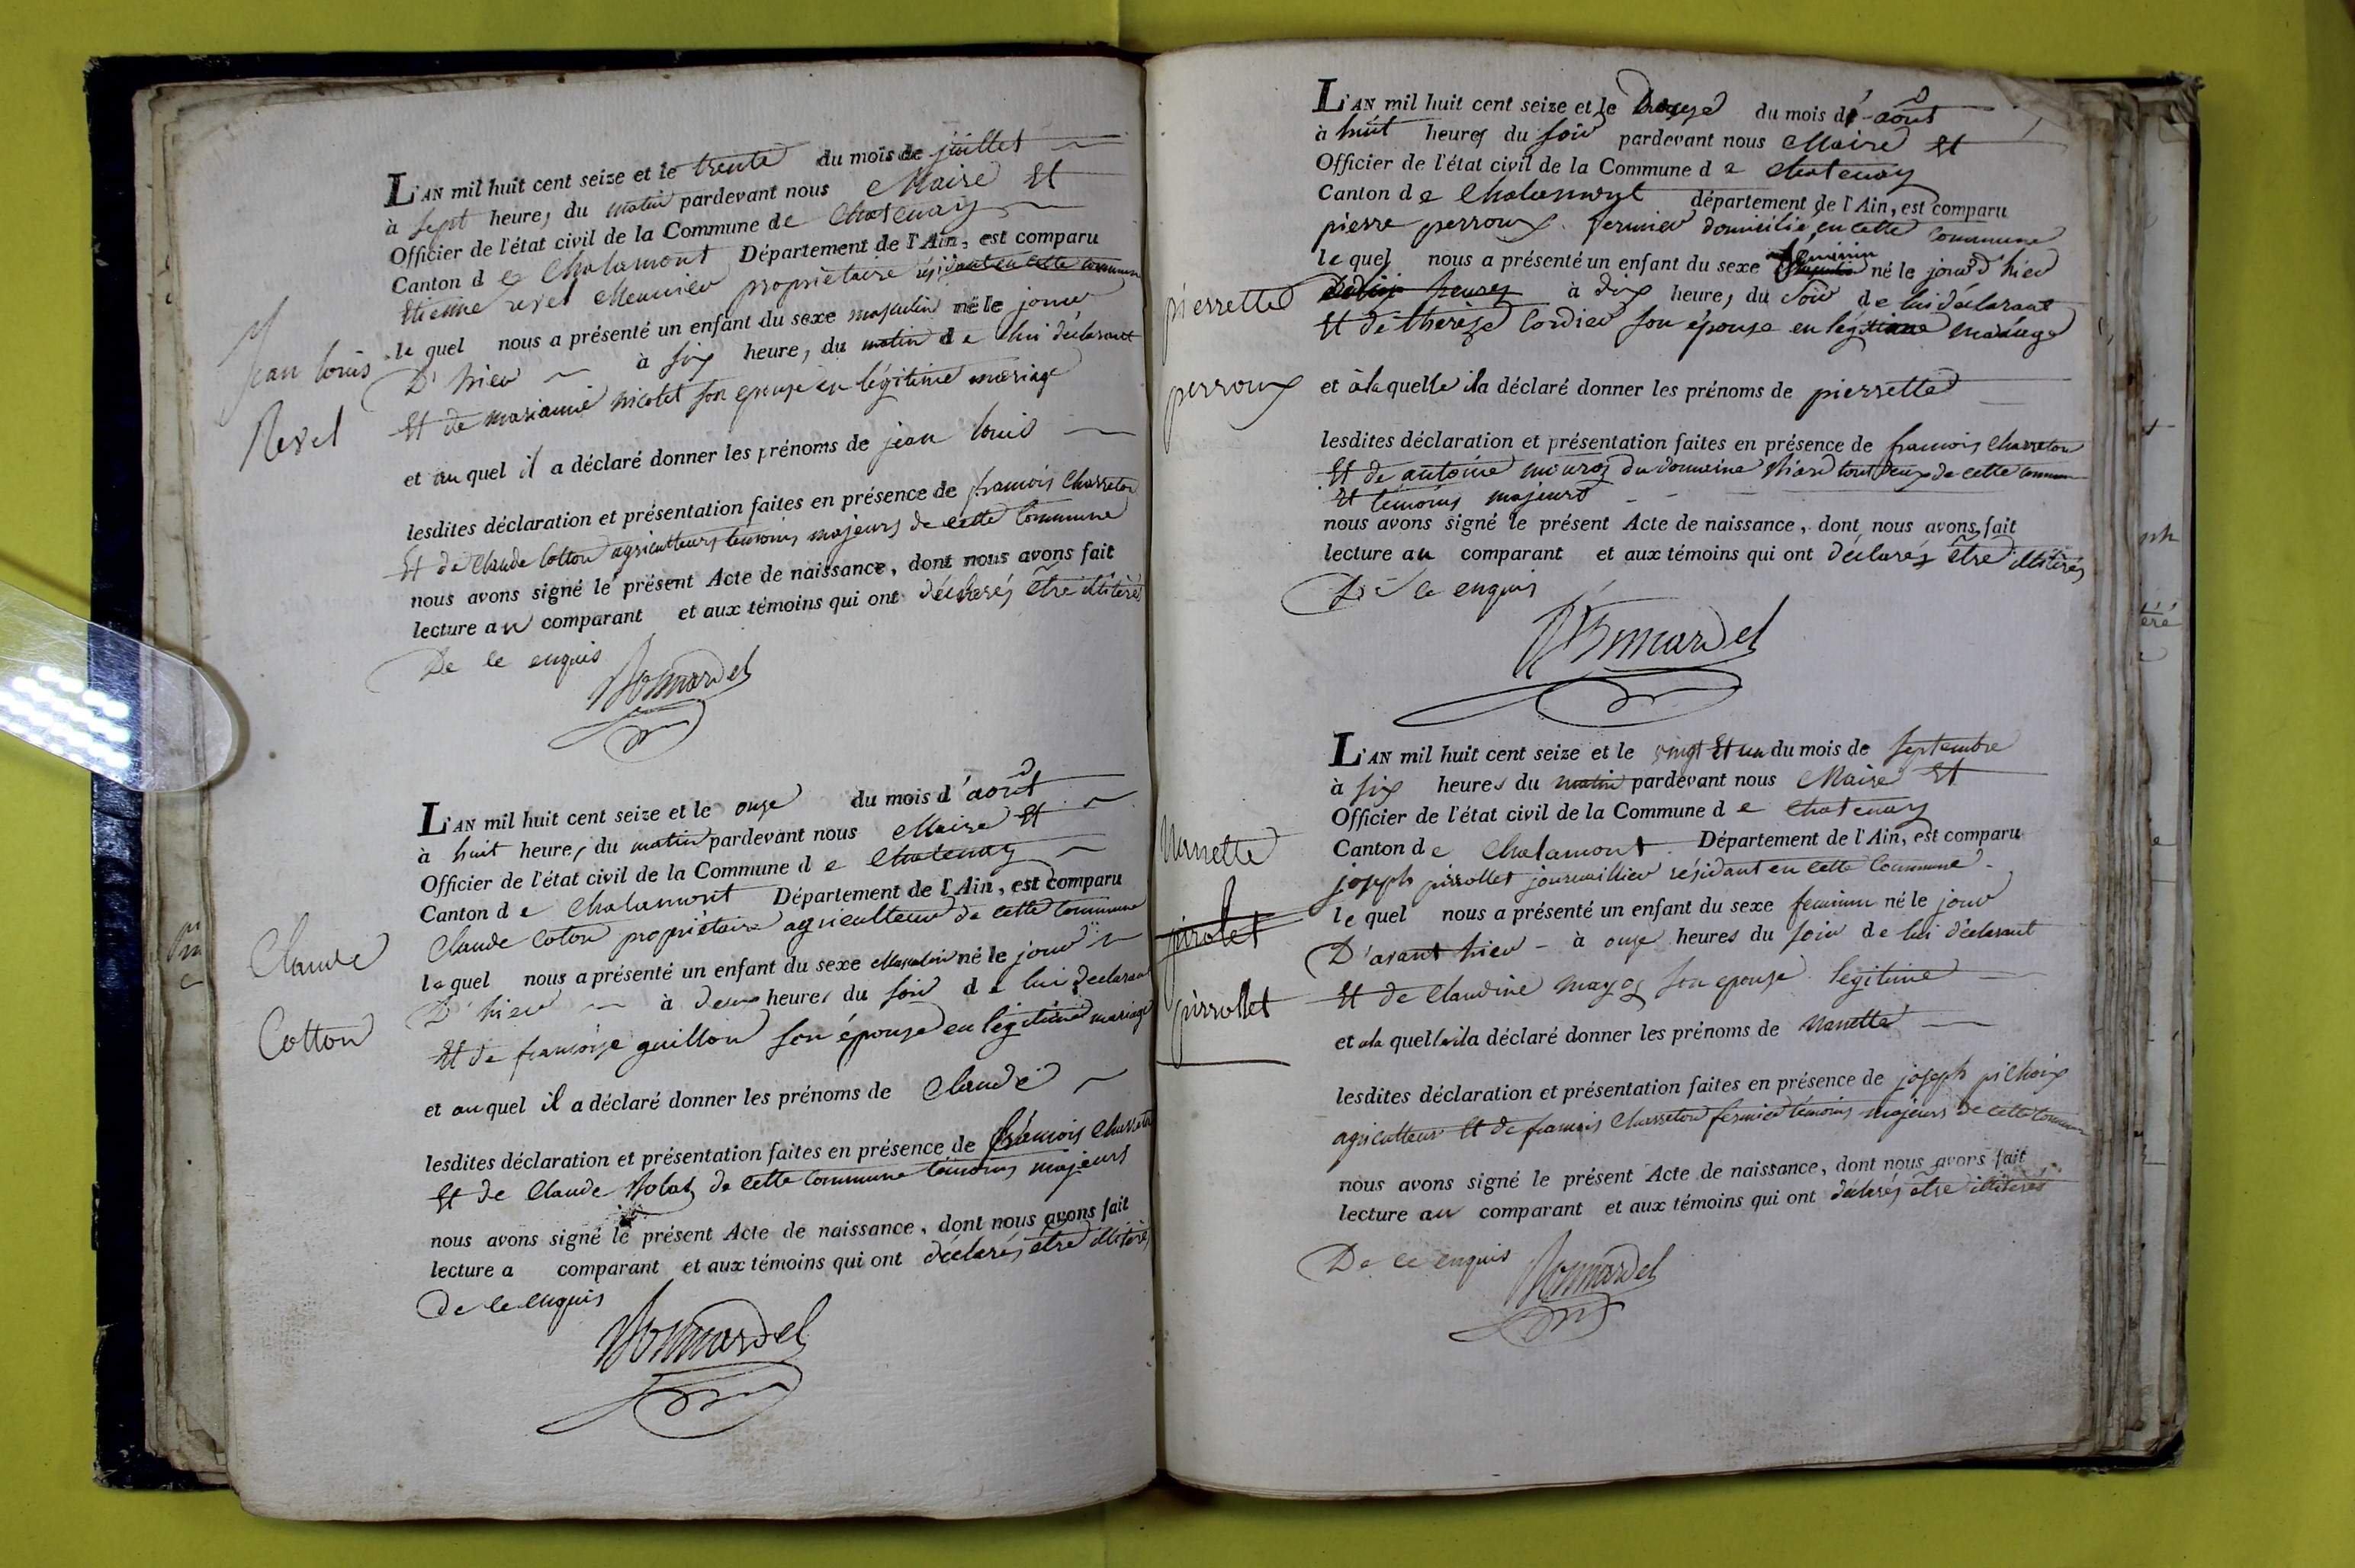 L'AN mil huit cent seize et le trente du mois de juillet
à sept heures du matin pardevant nous Maire Et
Officier de l'état civil de la Commune de Chatenay
Canton de Chalamont Département de l'Ain, est comparu
Etienne revel Meunier propriétaire résidant en cette commune
le quel nous a présenté un enfant du sexe masculin né le jour
D'hier à six heures du matin de lui déclarant
Et de marianne nicolet son epouse en légitime mariage
Jean louis
Revel
et au quel il a déclaré donner les prénoms de jean louis
lesdites déclaration et présentation faites en présence de francois Charreton
Et de Claude Cotton agriculteurs temoins majeurs de cette Commune
nous avons signé le présent Acte de naissance, dont nous avons fait
lecture au comparant et aux témoins qui ont déclarés être illitérés
De ce enquis
Bonnardel
L'AN mil huit cent seize et le onze du mois d'août
à huit heures du matin pardevant nous Maire Et
Officier de l'état civil de la Commune de Chatenay
Canton de Chalamont Département de l'Ain, est comparu
Claude Coton propriétaire agriculteur de cette Commune
le quel nous a présenté un enfant du sexe Masculin né le jour
D'hier à deux heures du soir de lui declarant
Et de françoise guillon son épouse en légitime mariage
Claude
Cotton
et au quel il a déclaré donner les prénoms de Claude
lesdites déclaration et présentation faites en présence de francois Charreton
Et de Claude de cette Commune témoins majeurs
nous avons signé le présent Acte de naissance, dont nous avons fait
lecture a comparant et aux témoins qui ont déclarés être illitérés
De ce enquis
Bonnardel
L'AN mil huit cent seize et le du mois d'août
à huit heures du soir pardevant nous Maire Et
Officier de l'état civil de la Commune de Chatenay
Canton de Chalamont département de l'Ain, est comparu
pierre perroux fermier domicilié en cette Commune
le quel nous a présenté un enfant du sexe féminin né le jour d'hier
à dix heures du Soir de lui déclarant
Et de thérèze Cordier son épouse en légitime mariage
pierrette
perroux
et à la quelle il a déclaré donner les prénoms de pierrette
lesdites déclaration et présentation faites en présence de francois Charreton
Et de antoine du domaine tout deux de cette Commune
Et témoins majeurs
nous avons signé le présent Acte de naissance, dont nous avons fait
lecture au comparant et aux témoins qui ont déclarés être illitérés
De ce enquis
Bonnardel
L'AN mil huit cent seize et le vingt Et un du mois de Septembre
à six heures du matin pardevant nous Maire Et
Officier de l'état civil de la Commune de Chatenay
Canton de Chalamont Département de l'Ain, est comparu
joseph pirrollet journaillier résidant en cette Commune
le quel nous a présenté un enfant du sexe feminin né le jour
D'avant hier à onze heures du soir de lui déclarant
Et de Claudine son epouse legitime
Nanette
pirolet
pirrollet
et a la quelle il a déclaré donner les prénoms de Nanette
lesdites déclaration et présentation faites en présence de joseph
agriculteur Et de francois Charreton fermier témoins majeurs de cette Commune
nous avons signé le présent Acte de naissance, dont nous avons fait
lecture au comparant et aux témoins qui ont déclarés être illitérés
De ce enquis
Bonnardel